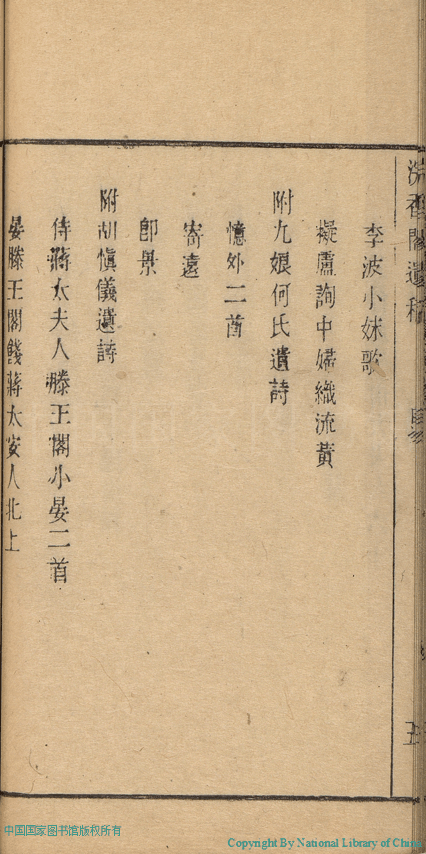 李波小妹歌
擬盧詢中婦織流黃
附九娘何氏遺詩
憶外二首
寄遠
卽景
附胡愼儀遺詩
侍蔣太夫人滕王閣小晏二首
晏滕王閣餞蔣太安人北上
中国国家图书馆版权所有
Copyright By National Library of China